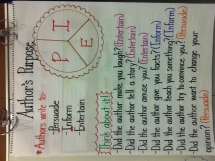 Author's Purpose
P
I
E
*Authors write to:
Persuade
Inform
Entertain
Think about it!
Did the author make you laugh? (Entertain)
Did the author tell a story? (Entertain)
Did the author amuse you? (Entertain)
Did the author give you facts? (Inform)
Did the author teach you something? (Inform)
Did the author try to convince you? (Persuade)
Did the author want to change your
opinion? (Persuade)